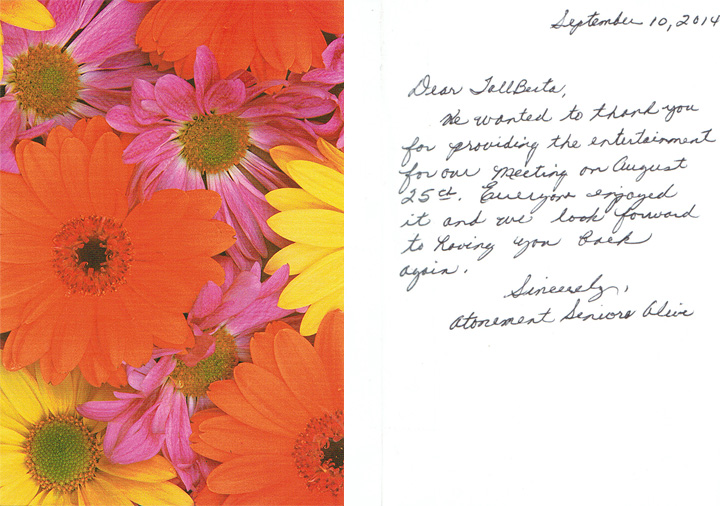 September 10, 2014
Dear TallBerta,
We wanted to thank you
for providing the entertainment
for our meeting on August
25th. Everyone enjoyed
it and we look forward
to having you back
again.
Sincerely,
Atonement Seniors Alive